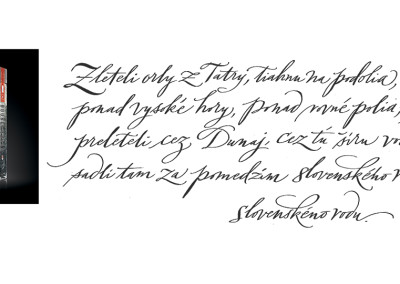 Zleteli orly z Tatry, tiahnu na podolia,
ponad vysoké hory, ponad rovné polia,
preleteli cez Dunaj, cez tú šíru
sadli tam za pomedzím slovenského
slovenského rodu.